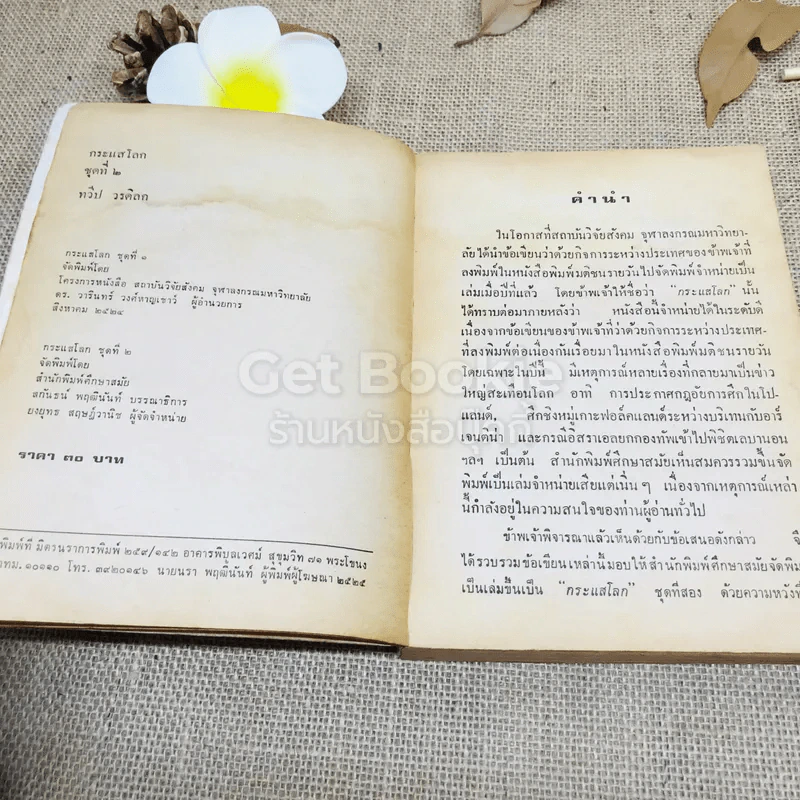 กระแสโลก
ชุดที่ ๒
ทวีป วรดิลก
กระแสโลก ชุดที่ ๑
จัดพิมพ์โดย
โครงการหนังสือ สถาบันวิจัยสังคม จุฬาลงกรณมหาวิทยาลัย
ดร. วารินทร์ วงศ์หาญเชาว์ ผู้อำนวยการ
สิงหาคม ๒๕๒๔
กระแสโลก ชุดที่ ๒
จัดพิมพ์โดย
สำนักพิมพ์ศึกษาสมัย
สกันธน์ พฤฒินันท์ บรรณาธิการ
ยงยุทธ สฤษฎ์วานิช ผู้จัดจำหน่าย
ราคา ๓๐ บาท
พิมพ์ที่ มิตรนราการพิมพ์ ๒๕๙/๑๔๒ อาคารพิบูลเวศม์ สุขุมวิท ๗๑ พระโขนง
กทม. ๑๐๑๑๐ โทร. ๓๙๒๐๑๔๖ นายนรา พฤฒินันท์ ผู้พิมพ์ผู้โฆษณา ๒๕๒๕
คำนำ
ในโอกาสที่สถาบันวิจัยสังคม จุฬาลงกรณมหาวิทยา-
ลัยได้นำข้อเขียนว่าด้วยกิจการระหว่างประเทศของข้าพเจ้าที่
ลงพิมพ์ในหนังสือพิมพ์มติชนรายวันไปจัดพิมพ์จำหน่ายเป็น
เล่มเมื่อปีที่แล้ว โดยข้าพเจ้าให้ชื่อว่า “กระแสโลก” นั้น
ได้ทราบต่อมาภายหลังว่า หนังสือนี้จำหน่ายได้ในระดับดี
เนื่องจากข้อเขียนของข้าพเจ้าที่ว่าด้วยกิจการระหว่างประเทศ-
ที่ลงพิมพ์ต่อเนื่องกันเรื่อยมาในหนังสือพิมพ์มติชนรายวัน
โดยเฉพาะในปีนี้ มีเหตุการณ์หลายเรื่องที่กลายมาเป็นข่าว
ใหญ่สะเทือนโลก อาทิ การประกาศกฎอัยการศึกในโป-
แลนด์, ศึกชิงหมู่เกาะฟอล์คแลนด์ระหว่างบริเทนกับอาร์
เจนตินา และกรณีอิสราเอลยกกองทัพเข้าไปพิชิตเลบานอน
ฯลฯ เป็นต้น สำนักพิมพ์ศึกษาสมัยเห็นสมควรรวมขึ้นจัด
พิมพ์เป็นเล่มจำหน่ายเสียแต่เนิ่น ๆ เนื่องจากเหตุการณ์เหล่า
นี้กำลังอยู่ในความสนใจของท่านผู้อ่านทั่วไป
ข้าพเจ้าพิจารณาแล้วเห็นด้วยกับข้อเสนอดังกล่าว จึ
ได้รวบรวมข้อเขียนเหล่านี้มอบให้สำนักพิมพ์ศึกษาสมัยจัดพิม
เป็นเล่มขึ้นเป็น “กระแสโลก” ชุดที่สอง ด้วยความหวังที่
Get Bookie
ร้านหนังสือบุ๊คกี้